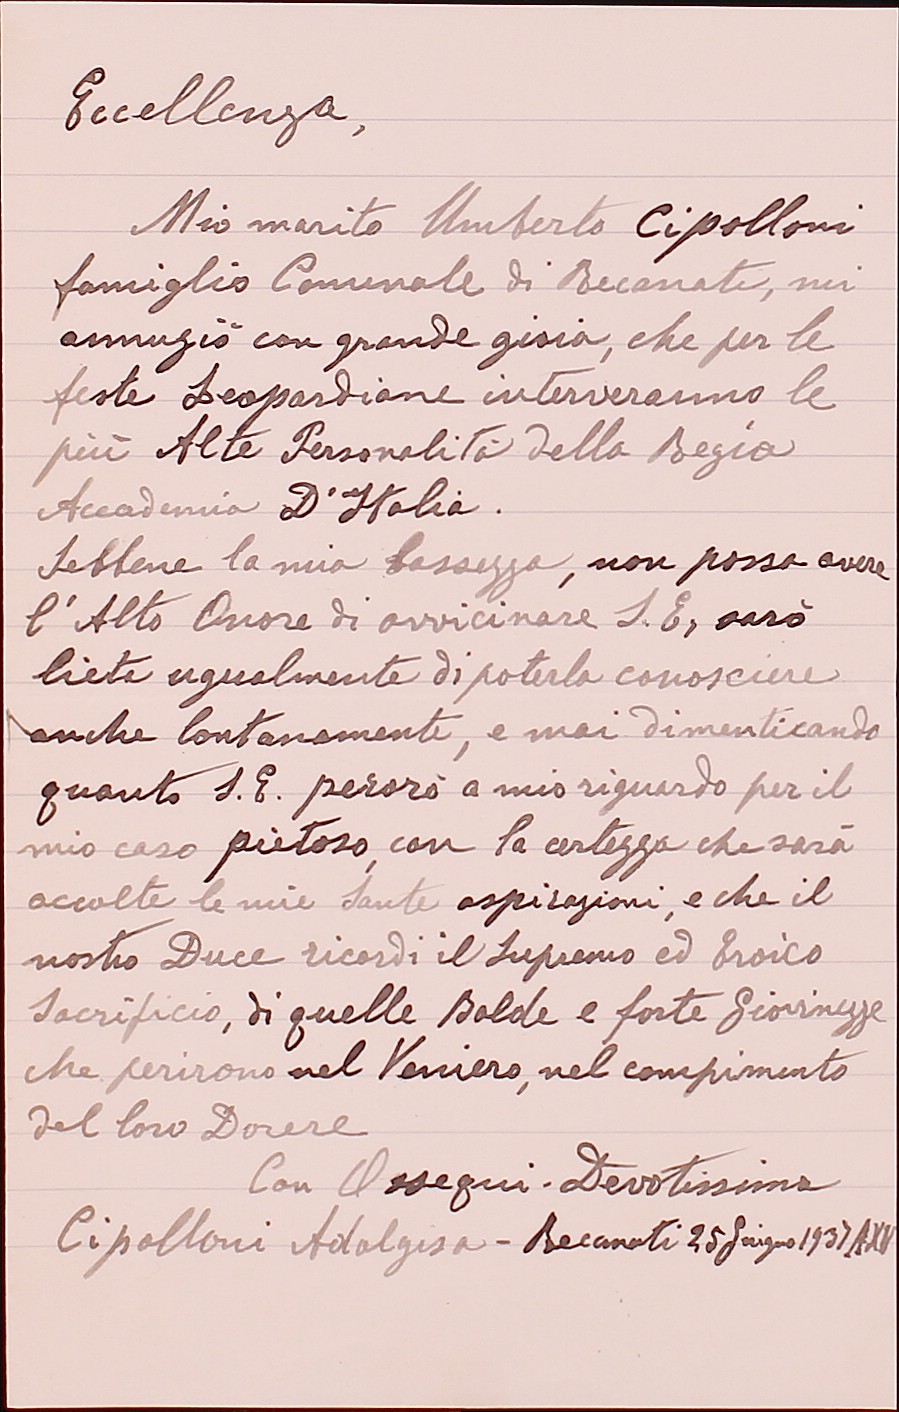 Eccellenza,
Mio marito Umberto Cipolloni
famiglio Comunale di Recanati, mi
annuziò con grande gioia, che per le
feste Leopardiane interveranno le
più Alte Personalità della Regia
Accademia D'Italia.
Sebbene la mia bassezza, non possa avere
l'Alto Onore di avvicinare S.E, sarò
lieta ugualmente di poterla conosciere
anche lontanamente, e mai dimenticando
quanto S.E. perorò a mio riguardo per il
mio caso pietoso, con la certezza che sarà
accolte le mie Sante aspirazioni, e che il
nostro Duce ricordi il Supremo ed Eroico
Sacrificio, di quelle Balde e forte Giovinezze
che perirono nel Veniero, nel compimento
del loro Dovere
Con Ossequi - Devotissima
Cipolloni Adalgisa - Recanati 25 Giugno 1937 A.XV